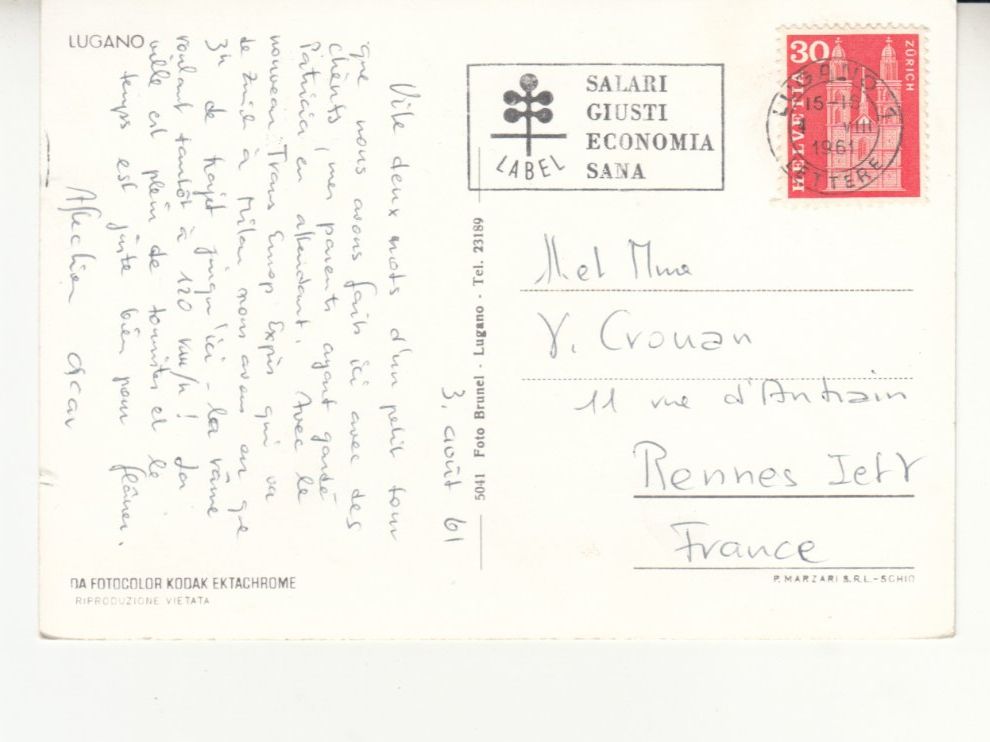 LUGANO
3. août 61
Vite deux mots d'un petit tour
que nous avons faits ici avec des
clients, mes parents ayant gardé
Patricia en attendant. Avec le
nouveau Trans Europ Expès qui va
de Zurich à Milan nous avons en ge
3h de trajet jusqu'ici - la rame
roulant tantôt à 120 km/h! La
ville est plein de touristes et le
temps est juste bien pour flâner.
DA FOTOCOLOR KODAK EKTACHROME
RIPRODUZIONE VIETATA
5041 Foto Brunel - Lugano - Tel. 23189
LABEL
SALARI
GIUSTI
ECONOMIA
SANA
30
HELVETIA
ZÜRICH
LUGANO 1
15-16
VIII
1961
LETTERE
M et Mme
Y. Crouan
11 rue d'Antrain
Rennes I et V
France
P. MARZARI S.R.L.-SCHIO